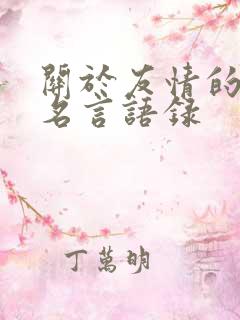 關於友情的
名言語錄
丁萬明